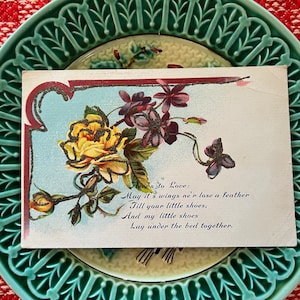 to Love:
May it's wings ne'r lose a feather
Till your little shoes,
And my little shoes
Lay under the bed together.